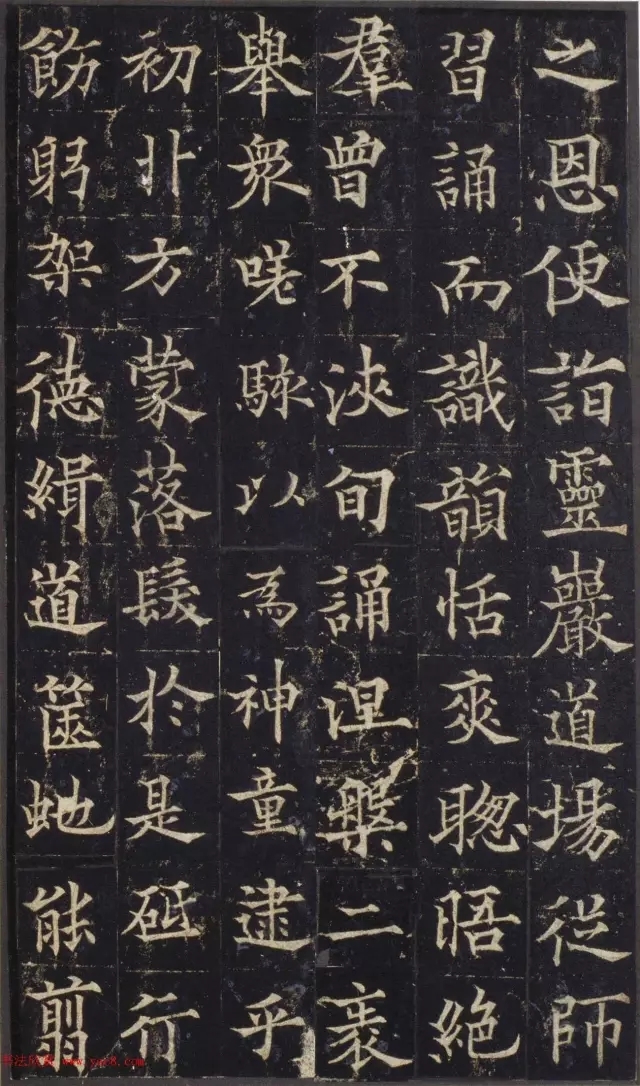 之恩便詣靈巖道場從師
習誦而識韻恬爽聰晤絕
羣曾不浹旬誦涅槃二袠
舉衆嗟駭以為神童逮乎
初卝方蒙落髮於是砥行
飭躬架德緝道篋虵能翦